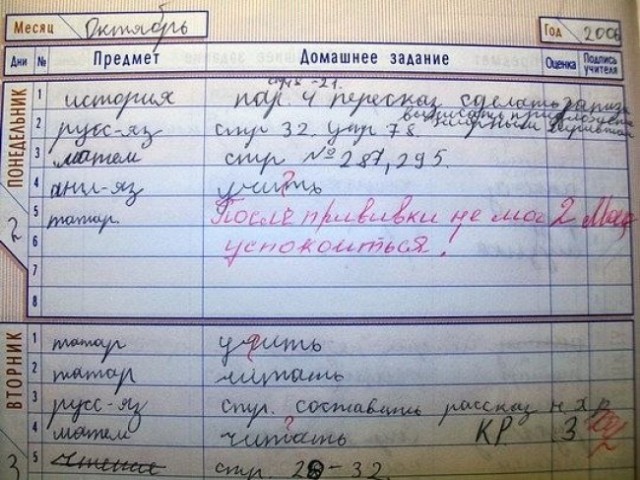 Месяц Октябрь Год 2006
Дни № Предмет Домашнее задание Оценка Подпись учителя
ПОНЕДЕЛЬНИК
2
стр -21.
1 история пар. 4 пересказ сделать
2 русс-яз стр 32. упр 78
3 матем стр №287,295.
4 анг-яз учить ?
5 татар. После прививки не мог 2
6 успокоиться!
7
8
ВТОРНИК
3
1 татар учить
2 татар читать
3 русс-яз стр. составить рассказ
4 матем читать ? КР 3
5 чтение стр. 28-32